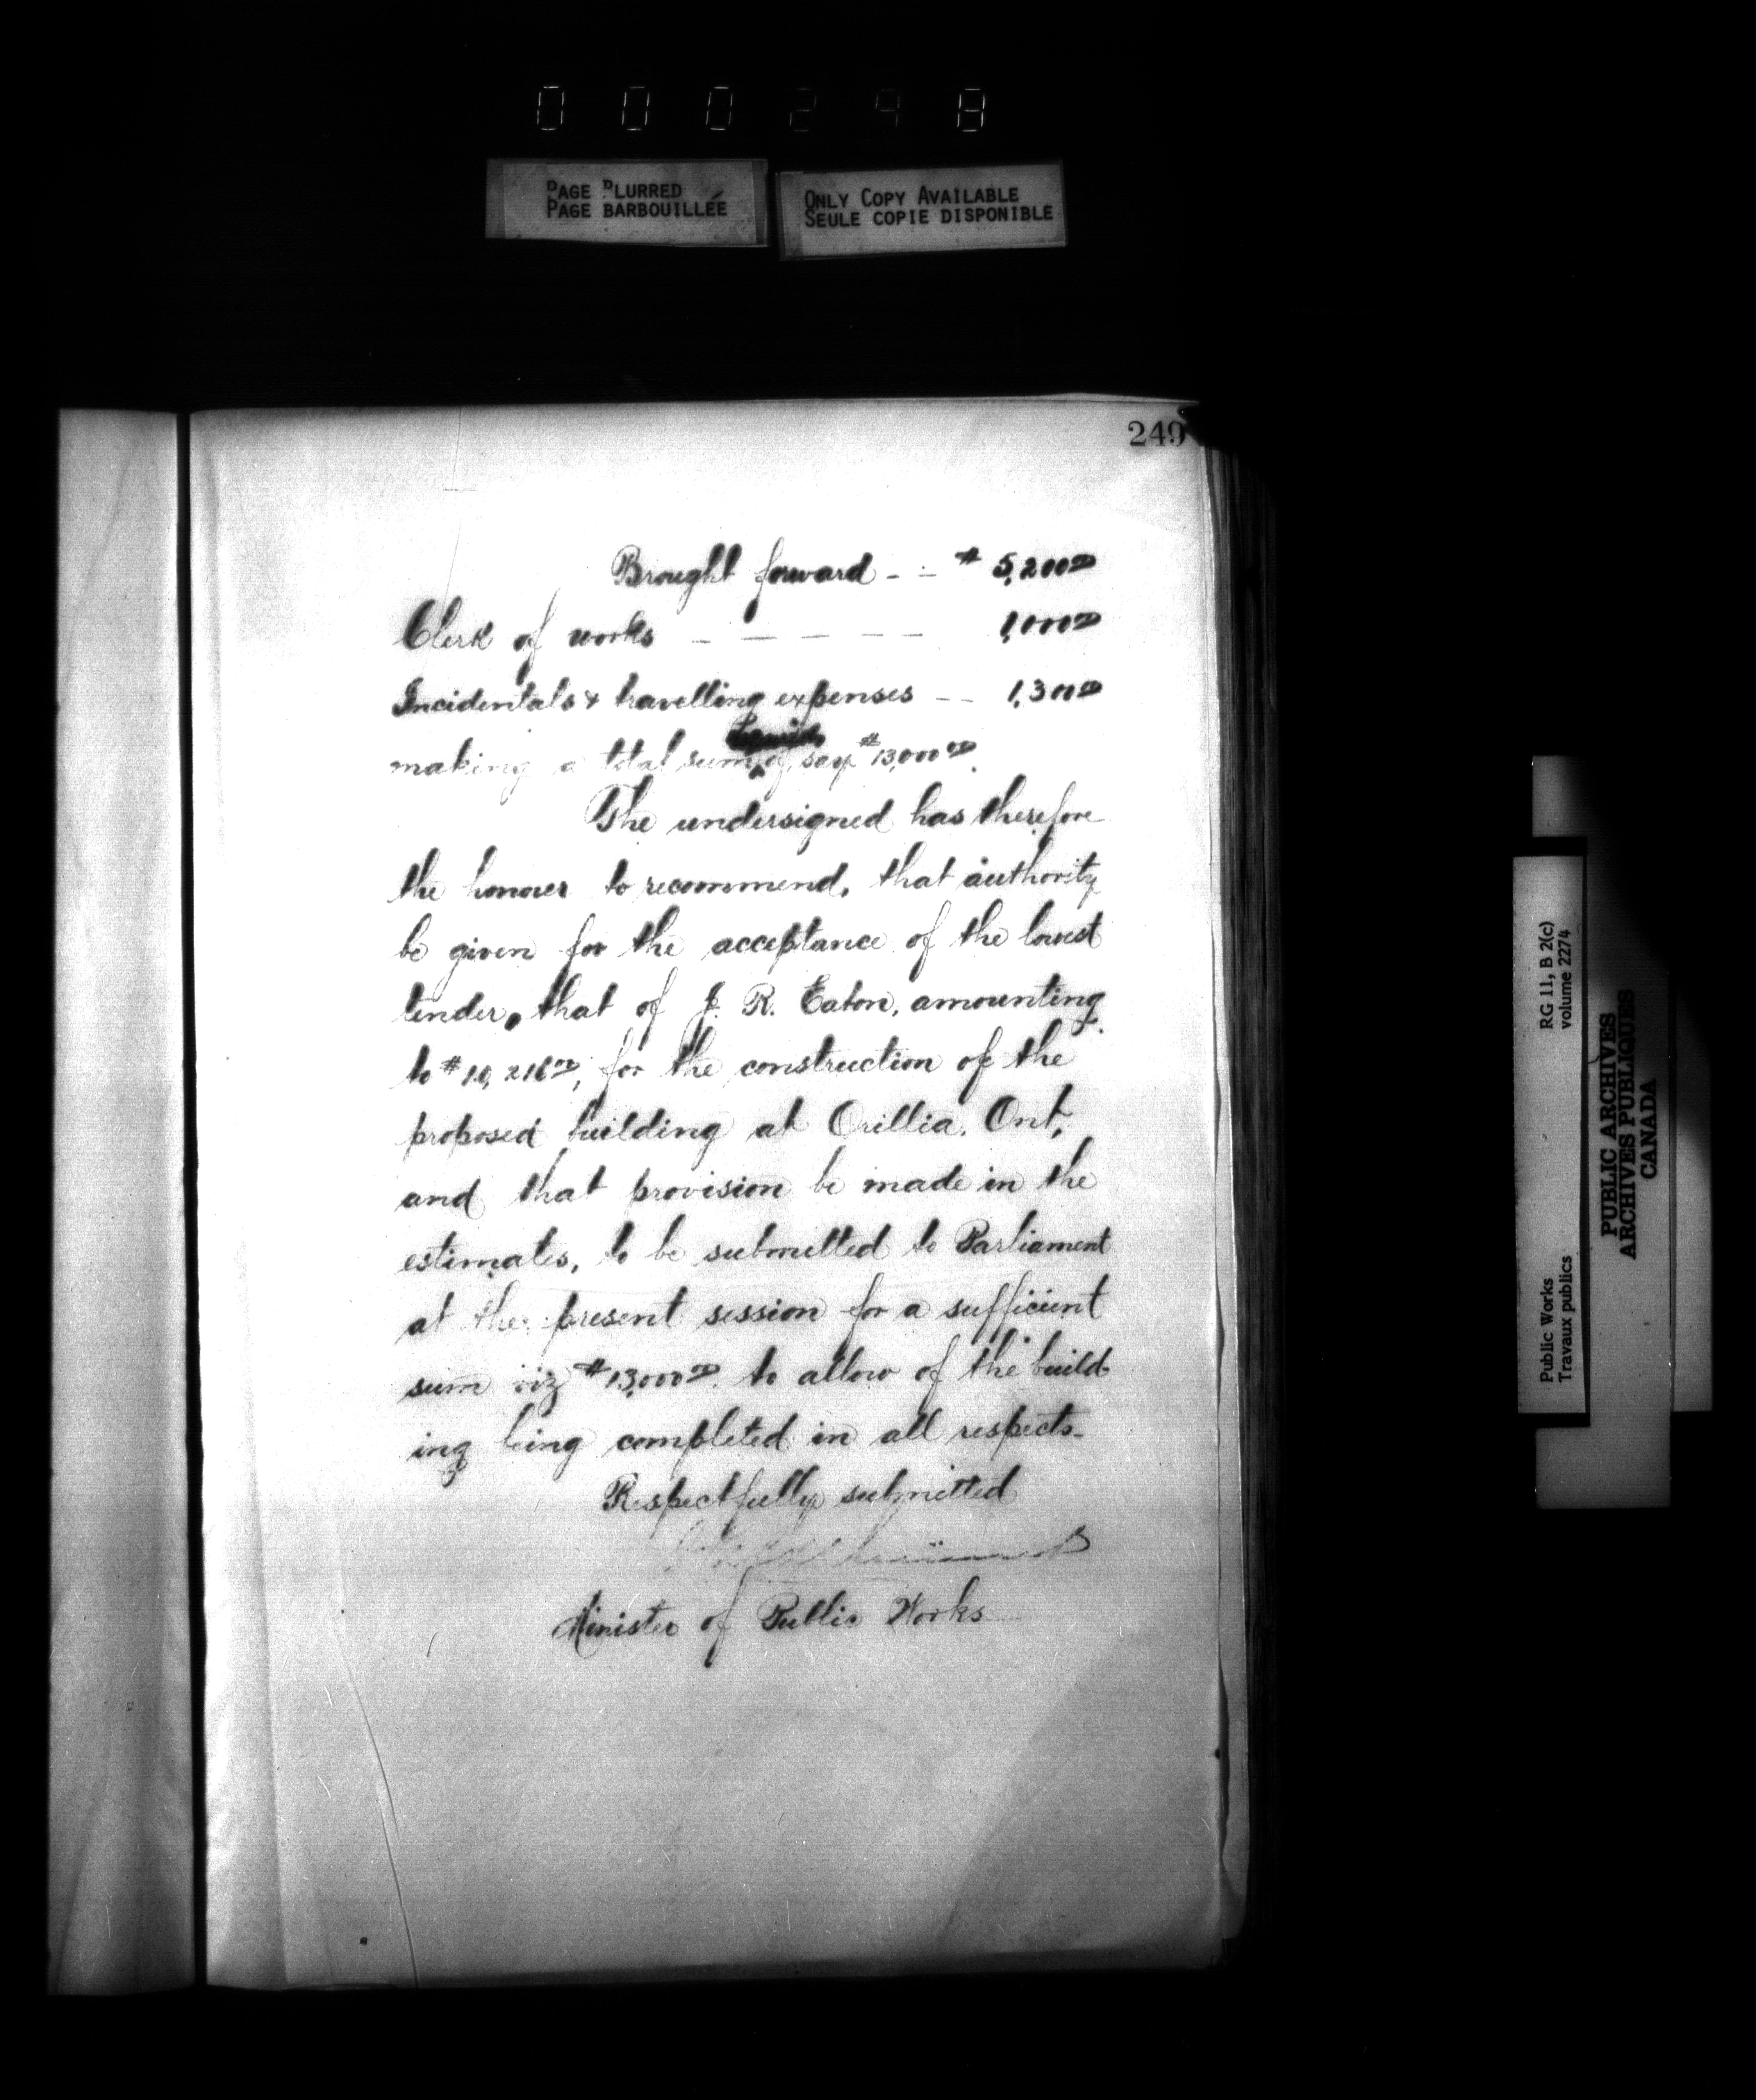 000248
PAGE BLURRED
PAGE BARBOUILLÉE
ONLY COPY AVAILABLE
SEULE COPIE DISPONIBLE
249
Brought forward - - $ 5,200 00
Clerk of works - - - - - 1,000 00
Incidentals & travelling expenses -- 1,300 00
making a total sum of, say $13,000 00.
The undersigned has therefore
the honour to recommend, that authority
be given for the acceptance of the lowest
tender, that of J. R. Eaton, amounting
to $10,218 00, for the construction of the
proposed building at Orillia, Ont,
and that provision be made in the
estimates, to be submitted to Parliament
at the present session for a sufficient
sum viz $13,000 00 to allow of the build-
ing being completed in all respects-
Respectfully submitted
Minister of Public Works
Public Works
Travaux publics
RG 11, B 2(c)
volume 2274
PUBLIC ARCHIVES
ARCHIVES PUBLIQUES
CANADA